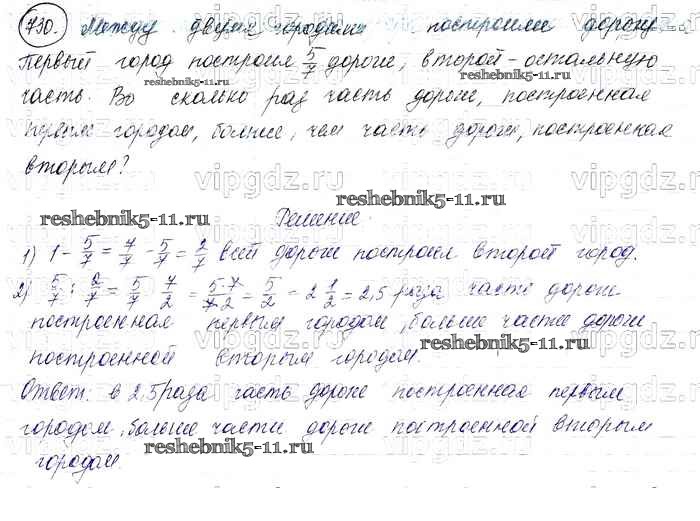 730. Между двумя городами построили дорогу.
Первый город построил 5/7 дороги, второй - остальную
часть. Во сколько раз часть дороги, построенная
первым городом, больше, чем часть дороги, построенная
вторым?
Решение.
1) 1 - 5/7 = 7/7 - 5/7 = 2/7 всей дороги построил второй город.
2) 5/7 : 2/7 = 5/7 · 7/2 = 5·7/7·2 = 5/2 = 2 1/2 = 2,5 раза часть дороги
построенная первым городом, больше части дороги
построенной вторым городом.
Ответ: в 2,5 раза часть дороги построенная первым
городом, больше части дороги построенной вторым
городом.
reshebnik5-11.ru
vipgdz.ru